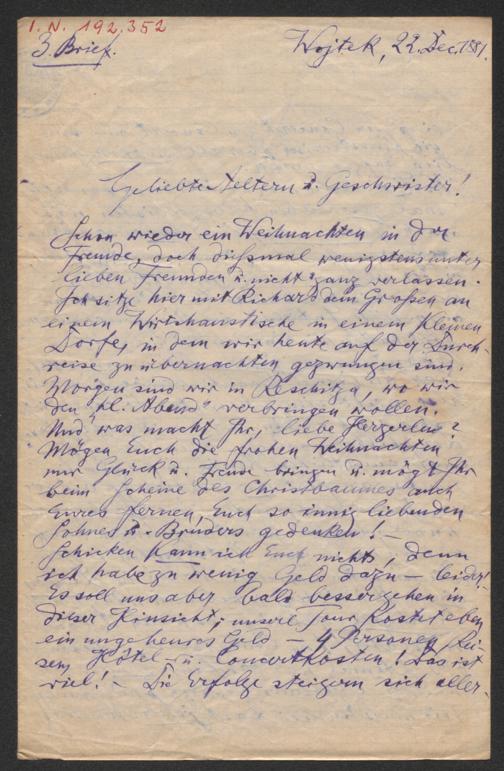 I. N. 192.352
3. Brief.
Wojtek, 22. Dec. 1881.
Geliebte Aeltern u. Geschwister!
Schon wieder ein Weihnachten in der
Fremde, doch dießmal wenigstens unter
lieben Freunden u. nicht ganz verlassen.
Ich sitze hier mit Richard dem Großen an
einem Wirtshaustische in einem kleinen
Dorfe, in dem wir heute auf der Durch-
reise zu übernachten gezwungen sind.
Morgen sind wir in Reschitza, wo wir
den "hl. Abend" verbringen wollen.
Und was macht Ihr, liebe Herzerln?
Mögen Euch die frohen Weihnachten
nur Glück u. Freude bringen u. mögt Ihr
beim Scheine des Christbaumes auch
Eures fernen, Euch so innig liebenden
Sohnes u. Bruders gedenken! -
Schicken kann ich Euch nichts, denn
ich habe zu wenig Geld dazu - leider!
Es soll uns aber bald besser gehen in
dieser Hinsicht, unsere Tour kostet eben
ein ungeheures Geld - 4 Personen, Rei-
sen, Hôtel- u. Concertkosten! Das ist
viel! - Die Erfolge steigern sich aller-